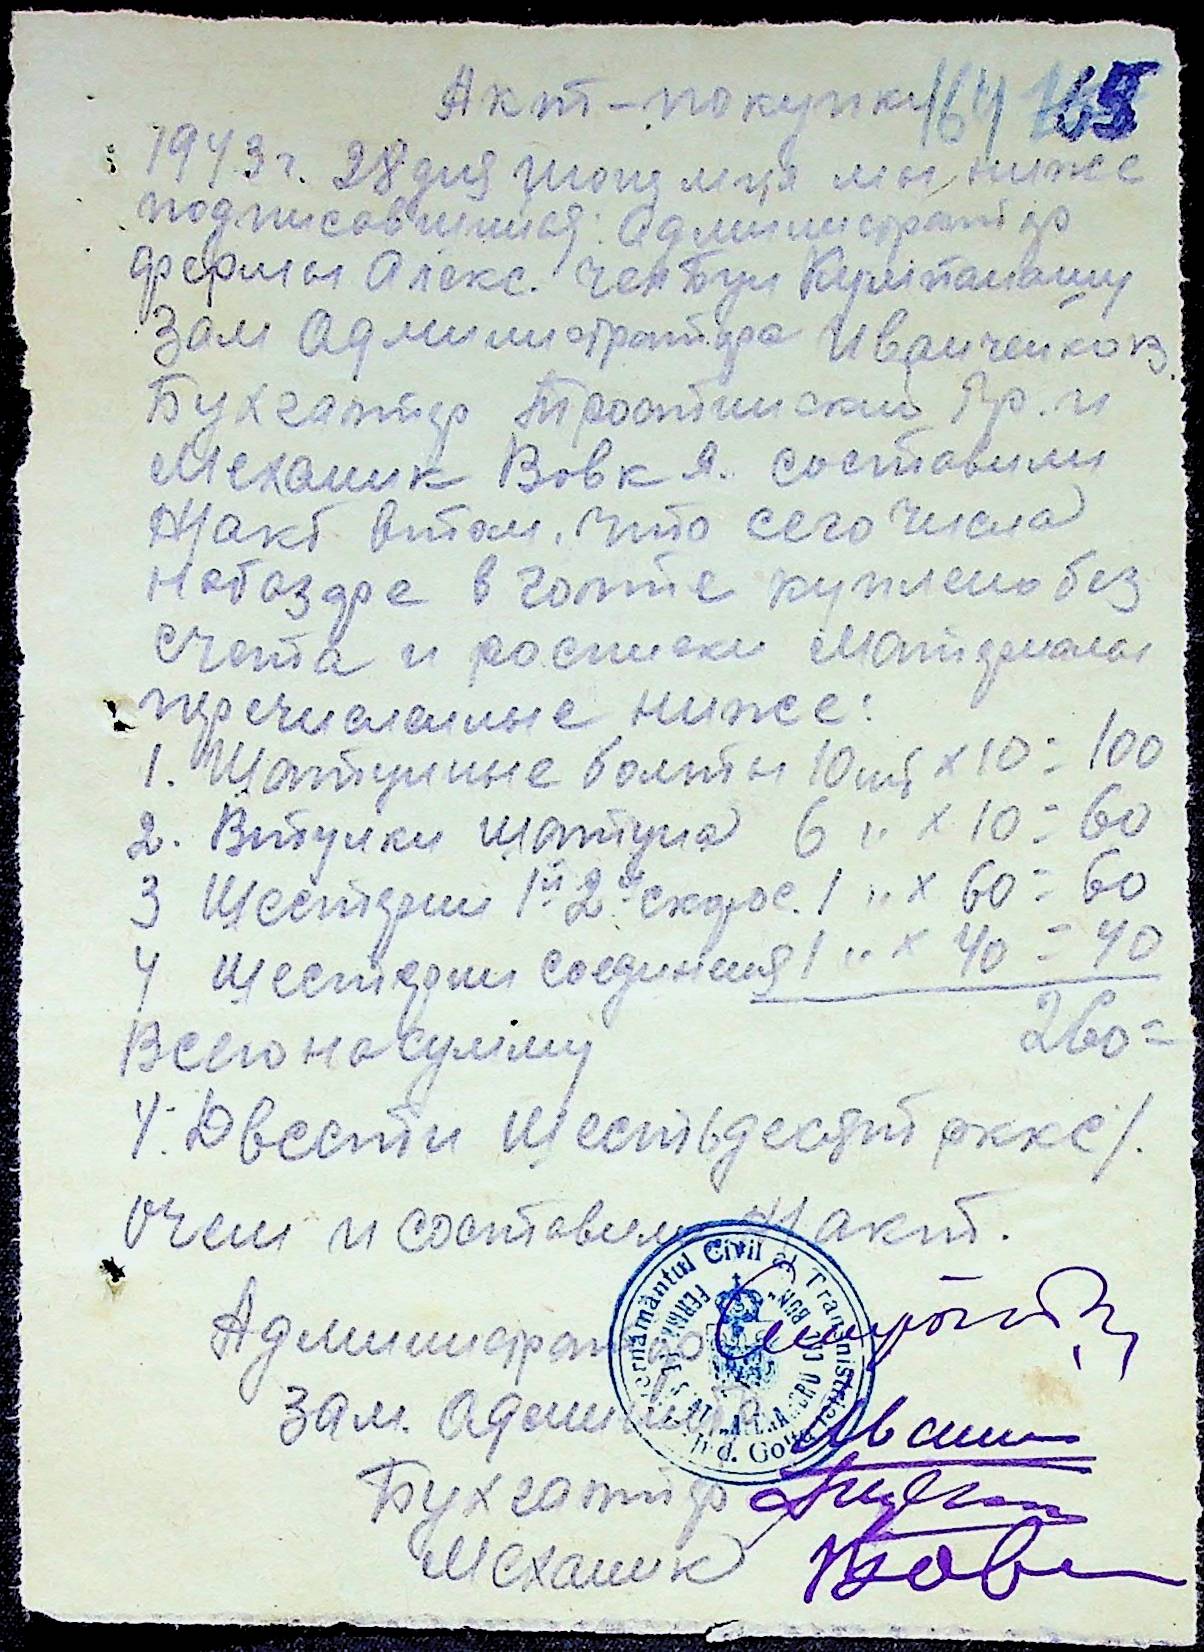 Акт-покупки 164 165
1943 г. 28 дня июня м-ця мы ниже
подписавшиеся: Администратор
фермы Алекс. чел Бун
Зам Администратора Иванченко В.
Бухгалтер Тростинский Гр. и
Механик Вовк Я. составили
н/акт втом, что сего числа
набазаре в голте куплено без
счета и росписки материалы
перечисленные ниже:
1. Шатунные болты 10 шт x 10 = 100
2. Втулки шатуна 6 " x 10 = 60
3 Шестерни 1й 2й скорос. 1 " x 60 = 60
4 Шестерни соединения 1 " x 40 = 40
Всего на сумму 260=
/. Двести Шестьдесят рккс/.
Очем и составлен н/акт.
Администратор
Зам. Админист
Guvernământul Civil al Transnistriei
Jud. Golta
Бухгалтер
Механик Вовк